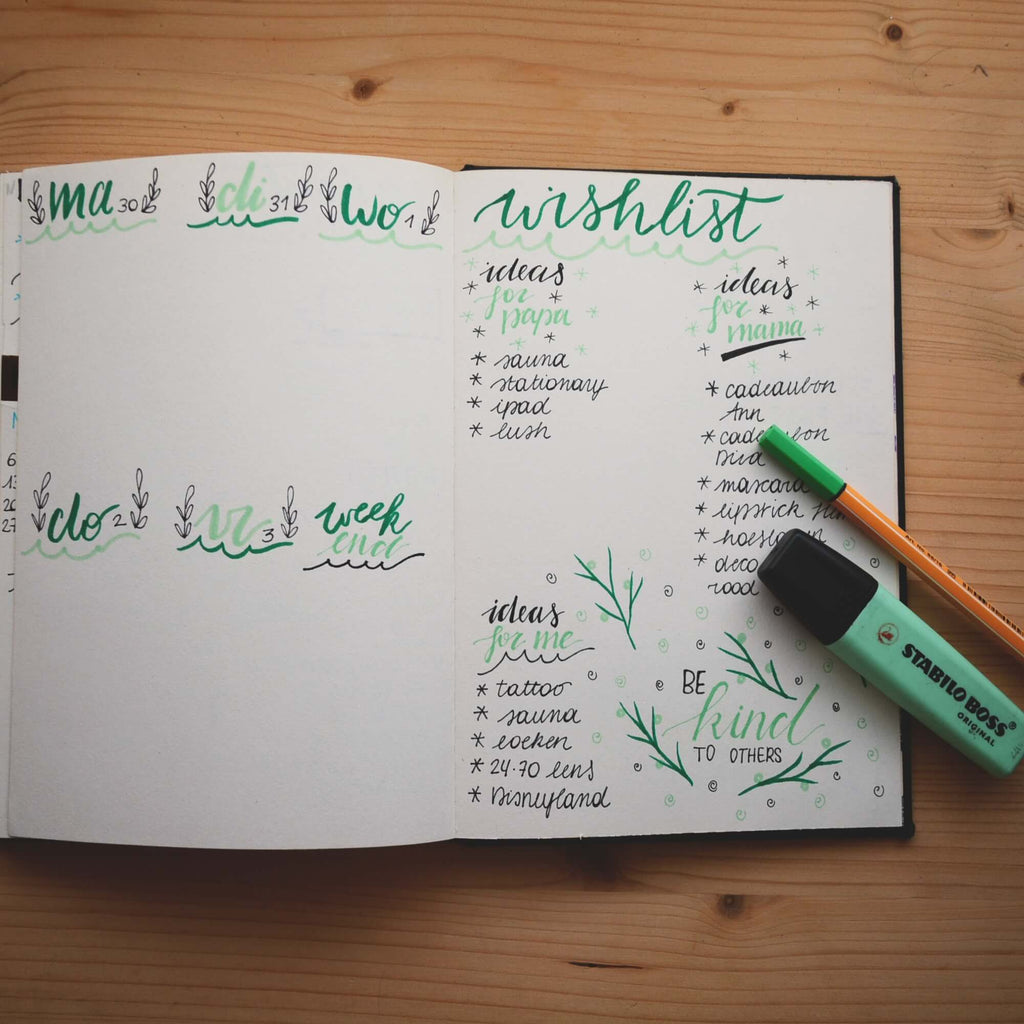 ma 30
di 31
wo 1
do 2
vr 3
week
end
wishlist
ideas
for
papa
* sauna
* stationary
* ipad
* lush
ideas
for
mama
* cadeaubon
Ann
*
* mascara
* lipstick
*
* deco
rood
ideas
for me
* tattoo
* sauna
* boeken
* 24-70 lens
* Disneyland
BE
kind
TO OTHERS
STABILO BOSS
ORIGINAL